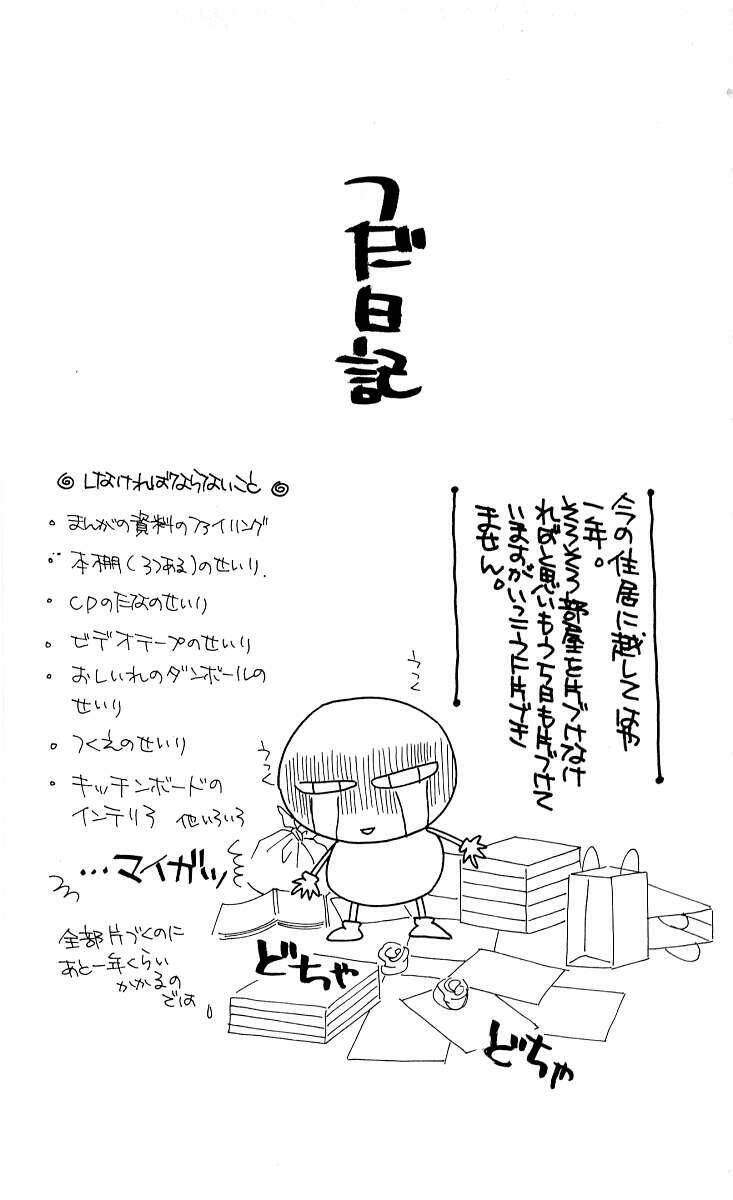 つだ日記
今の住居に越してはや
一年。
そろそろ部屋を片づけなけ
ればと思いもう5日も片づけて
いますがいっこうに片づき
ません。
しなければならないこと
・まんがの資料のファイリング
・本棚(3つある)のせいり.
・CDのたなのせいり
・ビデオテープのせいり
・おしいれのダンボールの
せいり
・つくえのせいり
・キッチンボードの
インテリア 他いろいろ
…マイガッ
全部片づくのに
あと一年くらい
かかるの
では
うっく
うっく
どちゃ
どちゃ